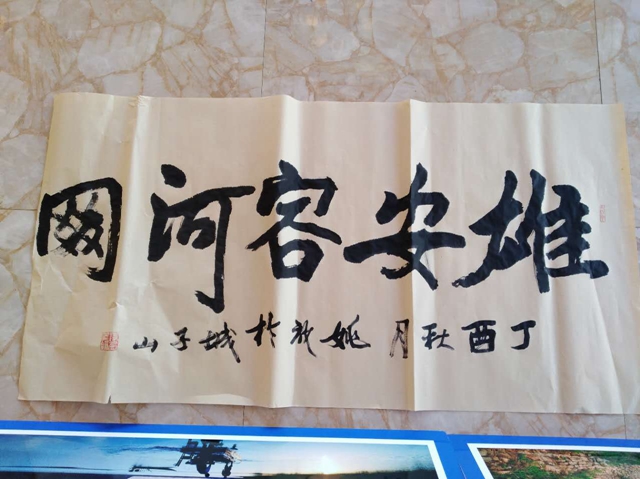 雄安客河网
丁酉秋月姚於城子山